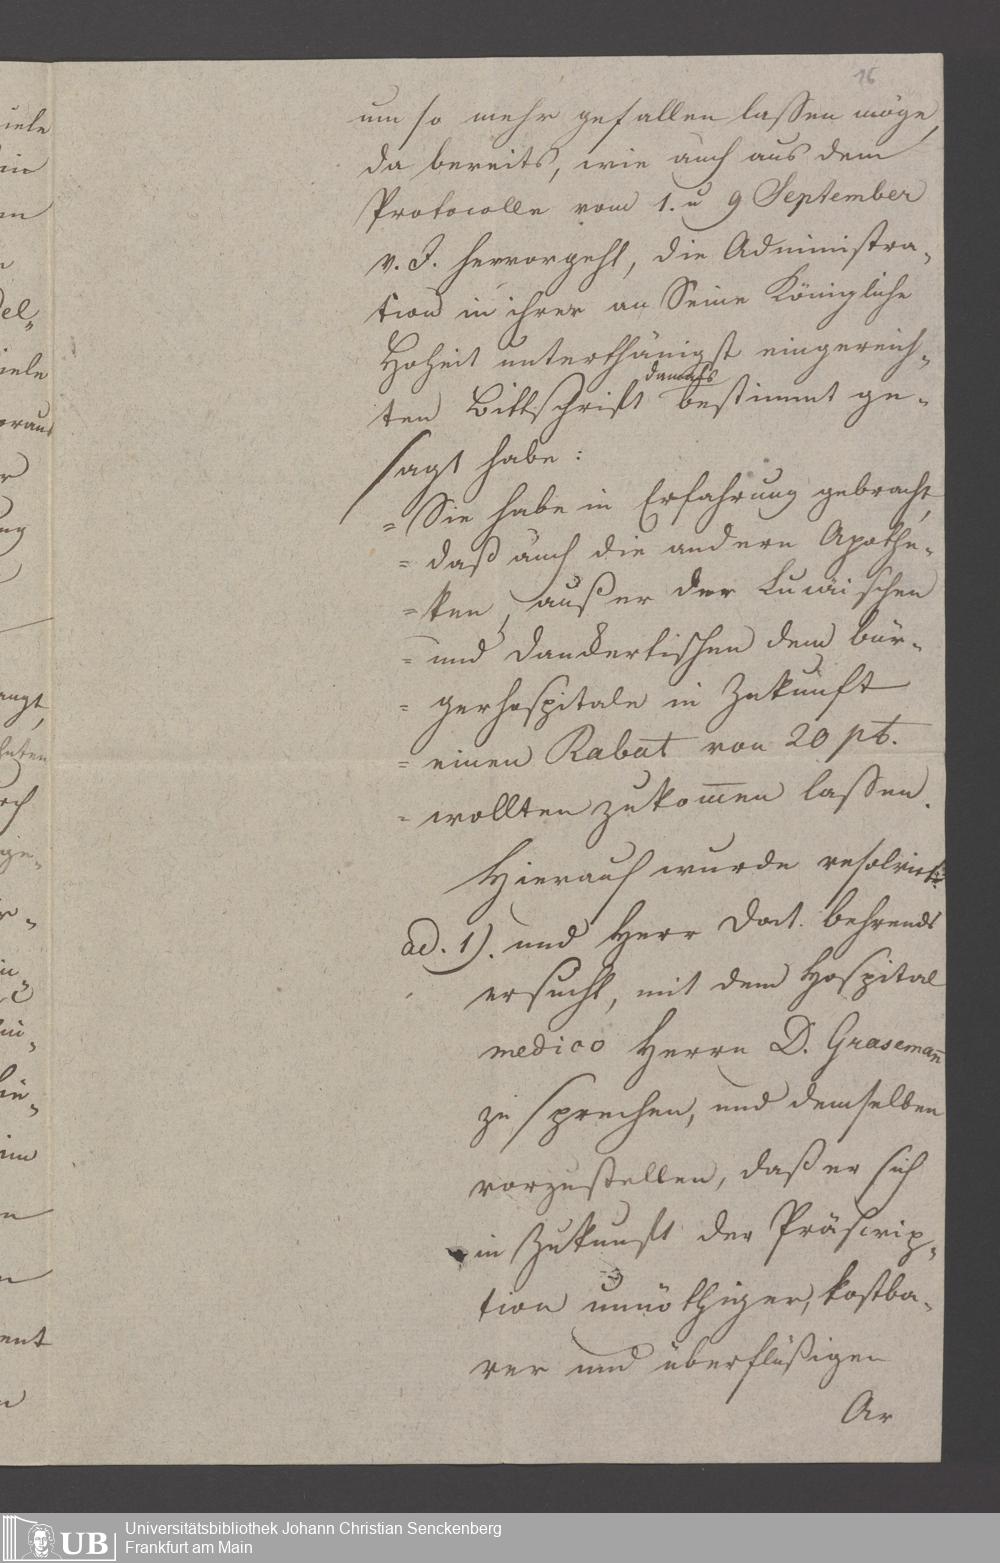 16
um so mehr gefallen lassen möge,
da bereits, wie auch aus dem
Protocolle vom 1. u 9 September
v. J. hervorgeht, die Administra-
tion in ihrer an Seine Königliche
Hoheit unterthänigst eingereich-
damals
ten Bittschrift bestimmt ge-
sagt habe:
= Sie habe in Erfahrung gebracht,
= daß auch die andern Apothe-
= ken, außer der
= und dem Bür-
= gerhospitale in Zukunft
= einen Rabat von 20 pCt.
= wollten zukom̅en lassen.
Hierauf wurde resolvirt:
ad. 1). und Herr Doct. Behrends
ersucht, mit dem Hospital
medico Herrn D. Graseman̅
zu sprechen, und demselben
vorzustellen, daß er sich
in Zukunft der Präscrip-
tion unnöthiger, kostba-
rer und überflüßigen
Ar
iele
del-
iele
oraus
ung
angt,
ge-
ent
UB
Universitätsbibliothek Johann Christian Senckenberg
Frankfurt am Main